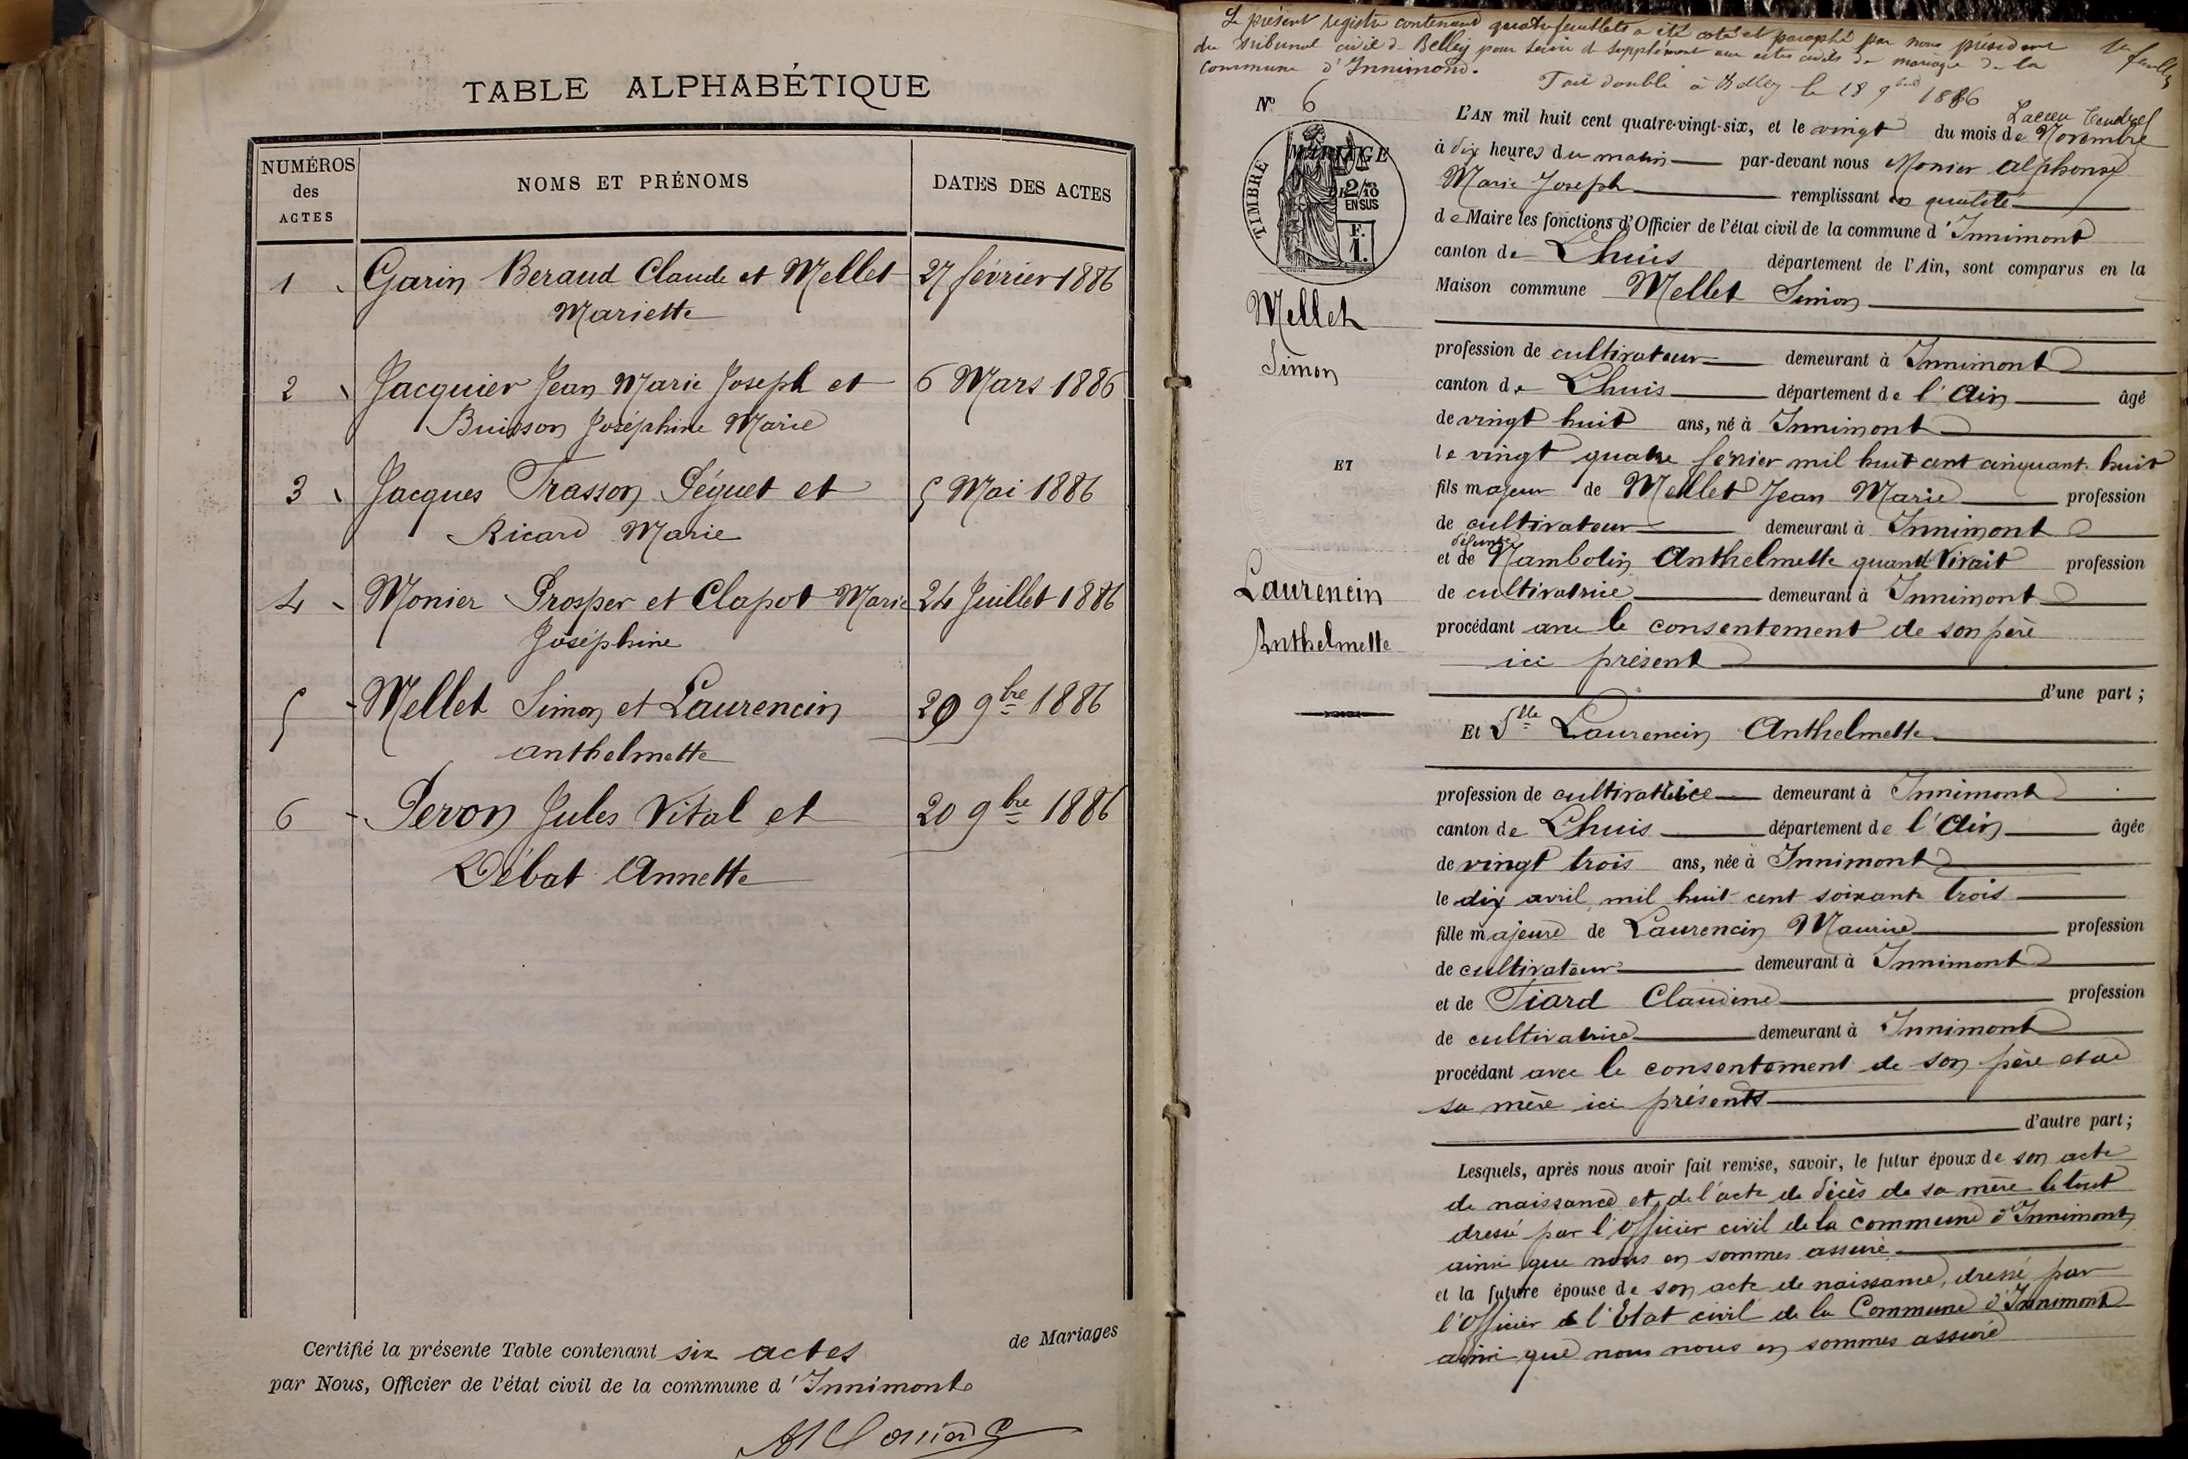 TABLE ALPHABÉTIQUE
NUMÉROS
des
ACTES
NOMS ET PRÉNOMS
DATES DES ACTES
1 Garin Beraud Claude et Mellet 27 février 1886
Mariette
2 Jacquier Jean Marie Joseph et 6 Mars 1886
Buisson Joséphine Marie
3 Jacques Trasson Péguet et 5 Mai 1886
Ricard Marie
4 Monier Prosper et Clapot Marie 24 Juillet 1886
Joséphine
5 Mellet Simon et Laurencin 20 9bre 1886
anthelmette
6 Peron Jules Vital et 20 9bre 1886
Débat Annette
Certifié la présente Table contenant six actes de Mariages
par Nous, Officier de l'état civil de la commune d'Innimont
Le présent registre contenant quatre feuillets a été coté et paraphé par nous président
du Tribunal civil de Belley pour servir de supplément aux actes civils de mariage de la
commune d'Innimond.
Fait double à Belley le 18 9bre 1886
No 6
TIMBRE
MARIAGE
2/10
EN SUS
F.
1.
Mellet
Simon
ET
Laurencin
Anthelmette
L'AN mil huit cent quatre-vingt-six, et le vingt du mois de Novembre
à dix heures du matin par-devant nous Monier Alphonse
Marie Joseph remplissant en qualité
de Maire les fonctions d'Officier de l'état civil de la commune d'Innimont
canton de Lhuis département de l'Ain, sont comparus en la
Maison commune Mellet Simon
profession de cultivateur demeurant à Innimont
canton de Lhuis département de l'Ain âgé
de vingt huit ans, né à Innimont
le vingt quatre fevrier mil huit cent cinquante huit
fils majeur de Mellet Jean Marie profession
de cultivateur demeurant à Innimont
défunte
et de Nambotin Anthelmette quand vivait profession
de cultivatrice demeurant à Innimont
procédant avec le consentement de son père
ici présent
d'une part ;
Et Dlle Laurencin Anthelmette
profession de cultivatrice demeurant à Innimont
canton de Lhuis département de l'Ain âgée
de vingt trois ans, née à Innimont
le dix avril mil huit cent soixante trois
fille majeure de Laurencin Maurice profession
de cultivateur demeurant à Innimont
et de Tiard Claudine profession
de cultivatrice demeurant à Innimont
procédant avec le consentement de son père et de
sa mère ici présents
d'autre part ;
Lesquels, après nous avoir fait remise, savoir, le futur époux de son acte
de naissance et de l'acte de décès de sa mère le tout
dressé par l'officier civil de la commune d'Innimont
ainsi que nous en sommes assuré
et la future épouse de son acte de naissance, dressé par
l'officier de l'Etat civil de la Commune d'Innimont
ainsi que nous nous en sommes assuré